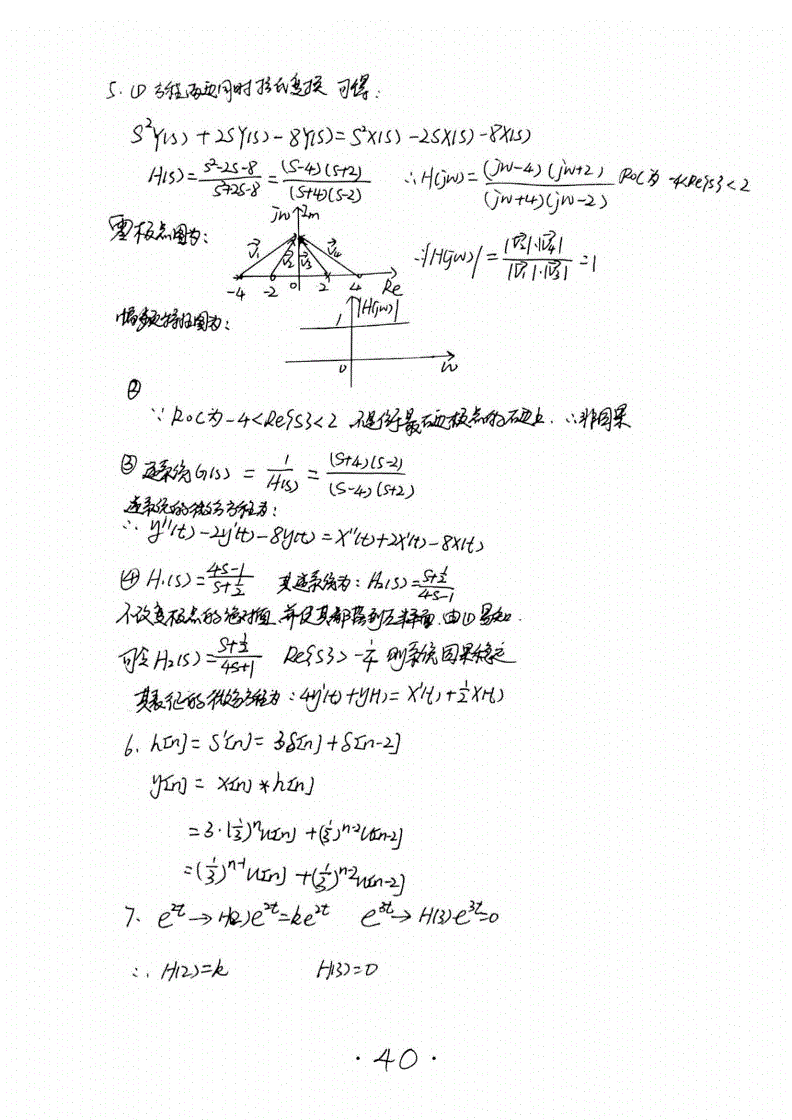 5. ① 方程两边同时拉氏变换 可得:
S²Y(s) + 2SY(s) - 8Y(s) = S²X(s) - 2SX(s) - 8X(s)
H(s) = (S²-2S-8)/(S²+2S-8) = (S-4)(S+2)/((S+4)(S-2)) ∴ H(jw) = (jw-4)(jw+2)/((jw+4)(jw-2)) ROC为 -4<Re{s}<2
零极点图为: jw Im V₁ V₂ V₃ V₄ -4 -2 0 2 4 Re ∴ |H(jw)| = |V₂|·|V₄|/(|V₁|·|V₃|) = 1
幅频特性图为: 1 |H(jw)| 0 w
②
∵ ROC为 -4<Re{s}<2 不是位于最右边极点的右边. ∴非因果
③ 逆系统G(s) = 1/H(s) = (S+4)(S-2)/((S-4)(S+2))
逆系统的微分方程为:
∴ y''(t) - 2y'(t) - 8y(t) = x''(t) + 2x'(t) - 8x(t)
④ H₁(s) = (4S-1)/(S+½) 其逆系统为: H₂(s) = (S+½)/(4S-1)
不改变极点的绝对值 并使其都落到左半平面. 由①易知.
可令 H₂(s) = (S+½)/(4S+1) Re{s} > -¼ 则系统因果稳定
其表征的微分方程为: 4y'(t) + y(t) = x'(t) + ½x(t)
6. h[n] = S'[n] = 3δ[n] + δ[n-2]
y[n] = x[n] * h[n]
= 3·(⅓)ⁿu[n] + (⅓)ⁿ⁻²u[n-2]
= (⅓)ⁿ⁻¹u[n] + (⅓)ⁿ⁻²u[n-2]
7. e²ᵗ → H(2)e²ᵗ = ke²ᵗ e³ᵗ → H(3)e³ᵗ = 0
∴ H(2) = k H(3) = 0
· 40 ·